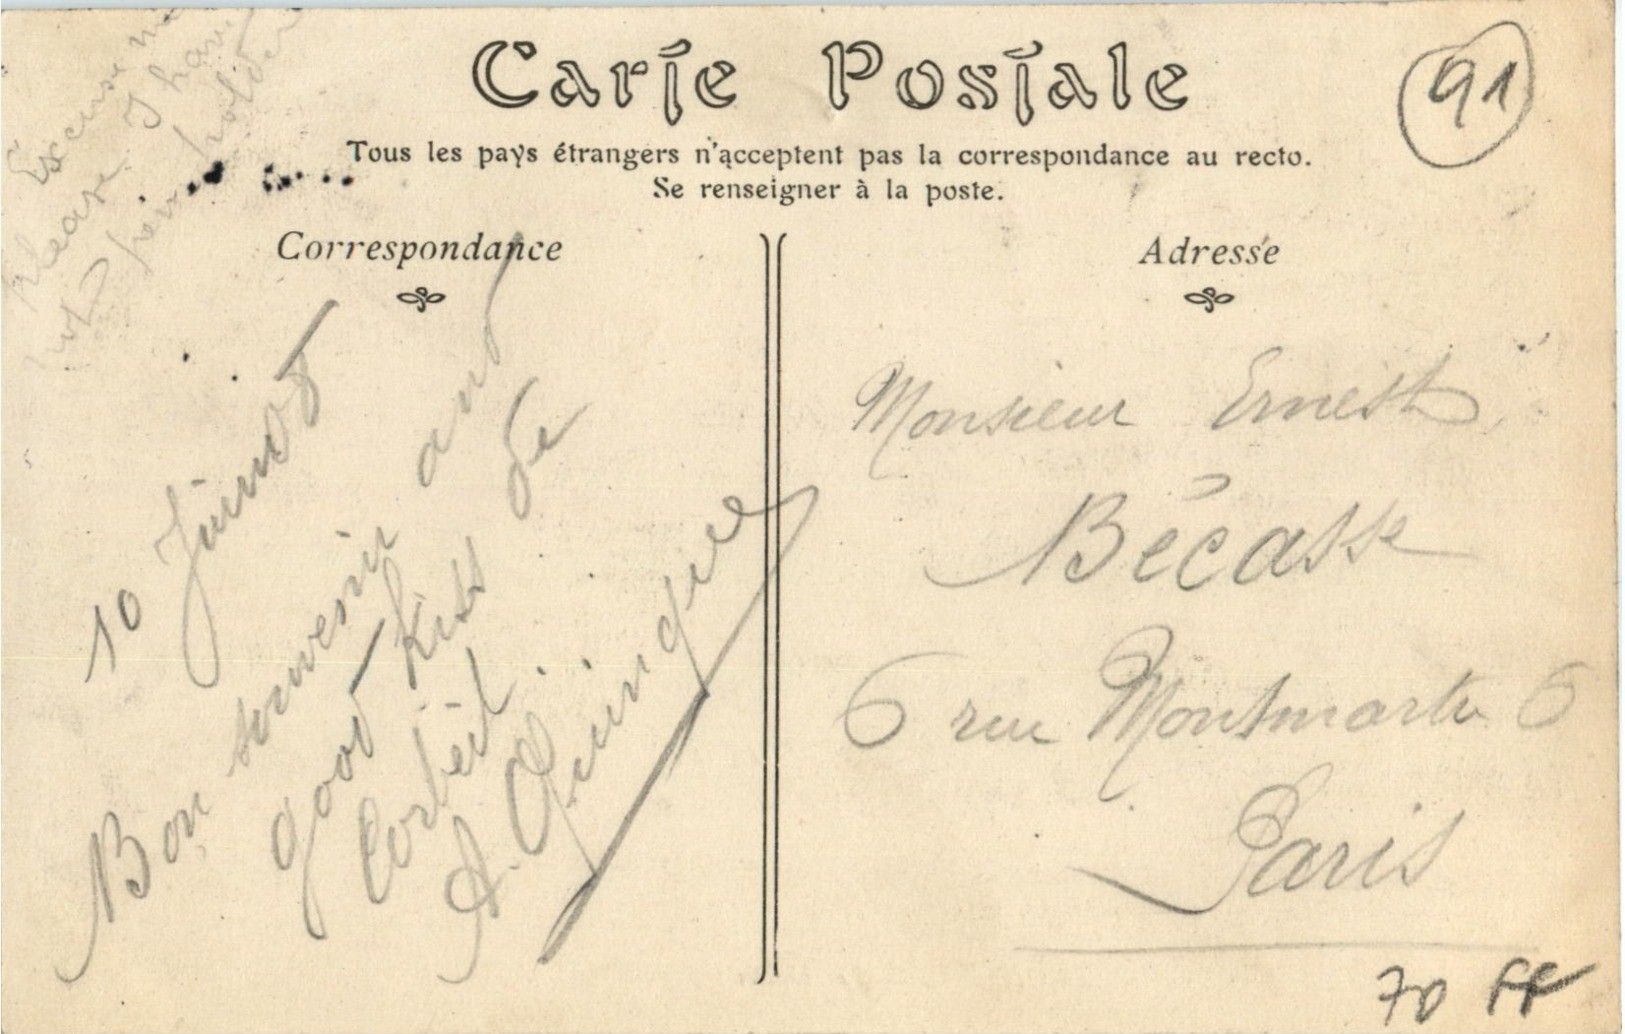 Carte Postale
91
Tous les pays étrangers n'acceptent pas la correspondance au recto.
Se renseigner à la poste.
Correspondance
Adresse
Excuse me
please I have
not pen holder
10 Juin 08
Bon souvenir and
good kiss de
Corbeil.
A.
Monsieur Ernest
Bécasse
6 rue Montmartre 6
Paris
70 FF